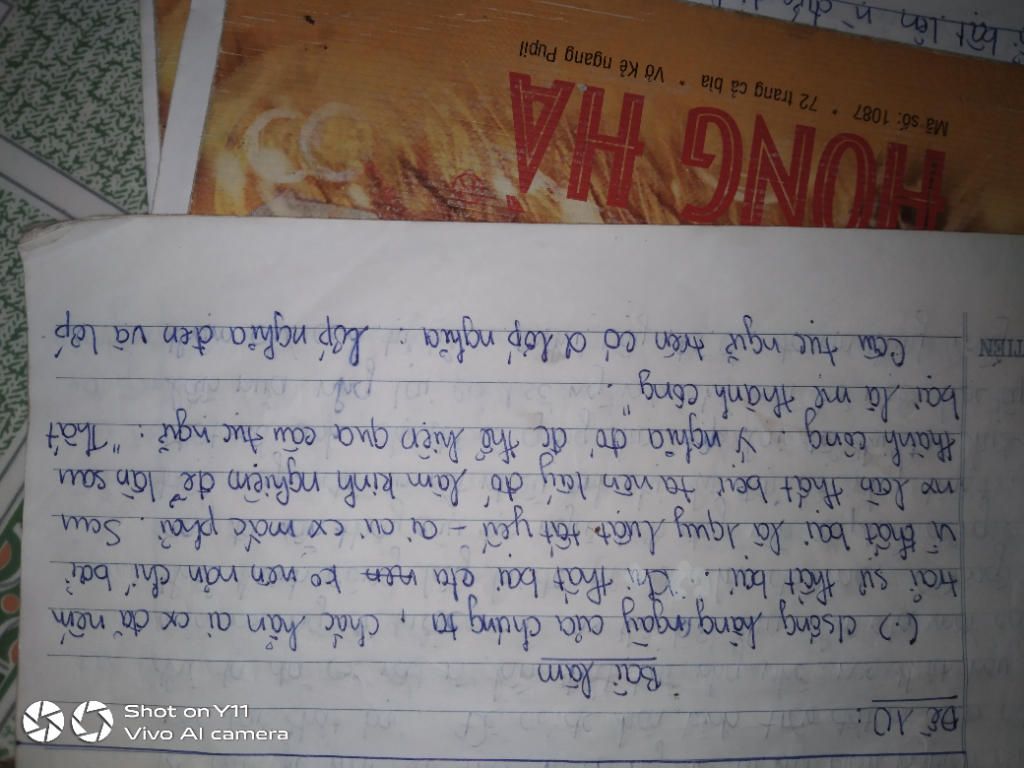 Đề 10:
Bài làm
(.) c/sống hàng ngày của chúng ta, chắc hẳn ai cx đã nếm
trải sự thất bại. Khi thất bại cta ko nên nản chí bởi
vì thất bại là quy luật tất yếu - ai ai cx mắc phải. Sau
mx lần thất bại ta nên lấy đó làm kinh nghiệm để lần sau
thành công. Ý nghĩa đó đc thể hiện qua câu tục ngữ: "Thất
bại là mẹ thành công".
Câu tục ngữ trên có 2 lớp nghĩa: Lớp nghĩa đen và lớp
TIÊN
HỒNG HÀ
Mã số: 1087 * 72 trang cả bìa * Vở Kẻ ngang Pupil
bật lên
Shot on Y11
Vivo AI camera